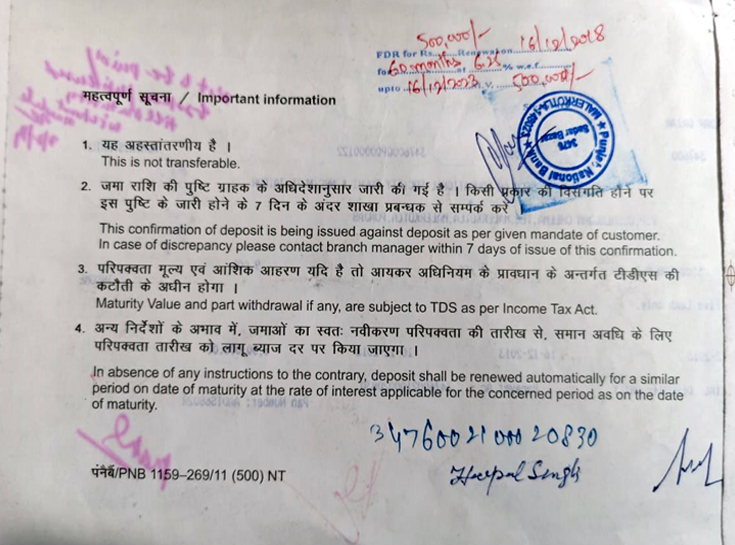 500,000/- 16/12/2018
FDR for Rs. Renewed on
for 60 months at 6.25 % w.e.f.
upto 16/12/2023 v. 500,000/-
महत्वपूर्ण सूचना / Important information
Punjab National Bank
3476
Sadar Bazar
MALERKOTLA-148023
1. यह अहस्तांतरणीय है ।
This is not transferable.
2. जमा राशि की पुष्टि ग्राहक के अधिदेशानुसार जारी की गई है । किसी प्रकार की विसंगति होने पर
इस पुष्टि के जारी होने के 7 दिन के अंदर शाखा प्रबन्धक से सम्पर्क करें
This confirmation of deposit is being issued against deposit as per given mandate of customer.
In case of discrepancy please contact branch manager within 7 days of issue of this confirmation.
3. परिपक्वता मूल्य एवं आंशिक आहरण यदि है तो आयकर अधिनियम के प्रावधान के अन्तर्गत टीडीएस की
कटौती के अधीन होगा ।
Maturity Value and part withdrawal if any, are subject to TDS as per Income Tax Act.
4. अन्य निर्देशों के अभाव में, जमाओं का स्वतः नवीकरण परिपक्वता की तारीख से, समान अवधि के लिए
परिपक्वता तारीख को लागू ब्याज दर पर किया जाएगा ।
In absence of any instructions to the contrary, deposit shall be renewed automatically for a similar
period on date of maturity at the rate of interest applicable for the concerned period as on the date
of maturity.
3476002100020830
पंनैबैं/PNB 1159–269/11 (500) NT
Harpal Singh